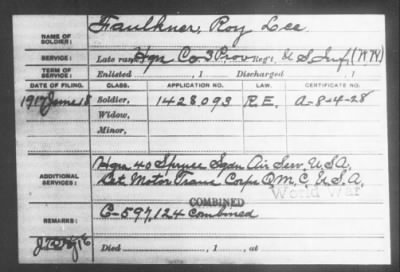 Faulkner, Roy Lee
NAME OF SOLDIER:
SERVICE: Late rank, Hqn Co 3 Prov Reg't, U S Inf, (WW)
TERM OF SERVICE: Enlisted , 1 Discharged , 1
DATE OF FILING. CLASS. APPLICATION NO. LAW. CERTIFICATE NO.
1917 June 18 Soldier, 1428093 R.E. A-8-4-28
Widow,
Minor,
ADDITIONAL SERVICES: Hqn 40 Spruce Sqdn Air Serv, U.S.A.
Det Motor Trans Corps Q.M.C. U.S.A.
World War
COMBINED
REMARKS: C-597,124 Combined
Died , 1 , at